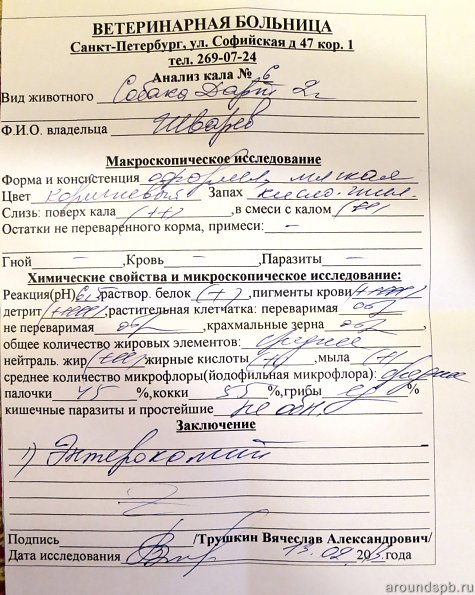 ВЕТЕРИНАРНАЯ БОЛЬНИЦА
Санкт-Петербург, ул. Софийская д 47 кор. 1
тел. 269-07-24
Анализ кала № 6
Вид животного Собака Дарт 2г
Ф.И.О. владельца Шварев
Макроскопическое исследование
Форма и консистенция оформлен мягкая
Цвет коричневый Запах кисло-гнил.
Слизь: поверх кала (++) ,в смеси с калом
Остатки не переваренного корма, примеси: –
Гной – ,Кровь – ,Паразиты –
Химические свойства и микроскопическое исследование:
Реакция(pH) раствор. белок (+) ,пигменты крови
детрит ,растительная клетчатка: переваримая
не переваримая ,крахмальные зерна
общее количество жировых элементов: среднее
нейтраль. жир жирные кислоты ,мыла (+)
среднее количество микрофлоры(йодофильная микрофлора): средня
палочки 45 %,кокки 55 %,грибы ед %
кишечные паразиты и простейшие не обн.
Заключение
1) Энтероколит
Подпись /Трушкин Вячеслав Александрович/
Дата исследования 13.02 2013.года
aroundspb.ru